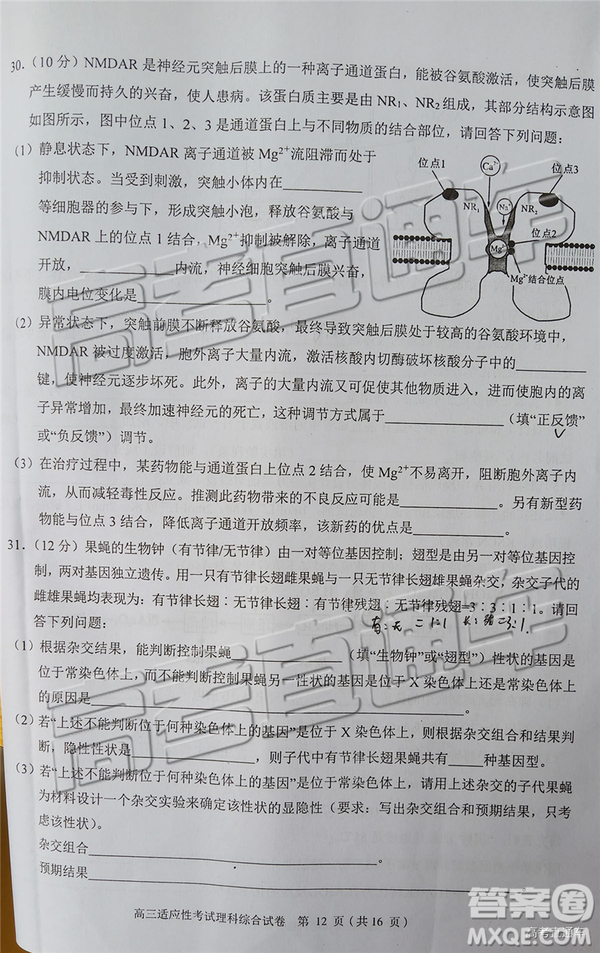 30.（10 分）NMDAR 是神经元突触后膜上的一种离子通道蛋白，能被谷氨酸激活，使突触后膜
产生缓慢而持久的兴奋，使人患病。该蛋白质主要是由 NR₁、NR₂ 组成，其部分结构示意图
如图所示，图中位点 1、2、3 是通道蛋白上与不同物质的结合部位，请回答下列问题：
(1) 静息状态下，NMDAR 离子通道被 Mg²⁺流阻滞而处于
抑制状态。当受到刺激，突触小体内在____________
等细胞器的参与下，形成突触小泡，释放谷氨酸与
NMDAR 上的位点 1 结合，Mg²⁺抑制被解除，离子通道
开放，____________内流，神经细胞突触后膜兴奋，
膜内电位变化是____________。
位点1
Ca²⁺
位点3
NR₁
Na⁺
NR₂
位点2
Mg²⁺
Mg²⁺结合位点
(2) 异常状态下，突触前膜不断释放谷氨酸，最终导致突触后膜处于较高的谷氨酸环境中，
NMDAR 被过度激活，胞外离子大量内流，激活核酸内切酶破坏核酸分子中的____________
键，使神经元逐步坏死。此外，离子的大量内流又可促使其他物质进入，进而使胞内的离
子异常增加，最终加速神经元的死亡，这种调节方式属于____________（填“正反馈”
或“负反馈”）调节。
(3) 在治疗过程中，某药物能与通道蛋白上位点 2 结合，使 Mg²⁺不易离开，阻断胞外离子内
流，从而减轻毒性反应。推测此药物的不良反应可能是____________。另有新型药
物能与位点 3 结合，降低离子通道开放频率，该新药的优点是____________。
31.（12 分）果蝇的生物钟（有节律/无节律）由一对等位基因控制；翅型是由另一对等位基因控
制，两对基因独立遗传。用一只有节律长翅雌果蝇与一只无节律长翅雄果蝇杂交，杂交子代的
雌雄果蝇均表现为：有节律长翅∶无节律长翅∶有节律残翅∶无节律残翅=3∶3∶1∶1。请回
答下列问题：
有：无 = 1:1 长：残 = 3:1.
(1) 根据杂交结果，能判断控制果蝇____________（填“生物钟”或“翅型”）性状的基因是
位于常染色体上，而不能判断控制果蝇另一性状的基因是位于 X 染色体上还是常染色体上
的原因是____________
(2) 若“上述不能判断位于何种染色体上的基因”是位于 X 染色体，则根据杂交组合和结果
判断，隐性性状是____________，则子代中有节律长翅雌果蝇共有____种基因型。
(3) 若“上述不能判断位于何种染色体上的基因”是位于常染色体，请用上述杂交的子代果蝇
为材料设计一个杂交实验来确定该性状的显隐性（要求：写出杂交组合和预期结果，只考
虑该性状）。
杂交组合____________
预期结果____________
高三适应性考试理科综合试卷 第 12 页（共 16 页）
高考直通车
高考直通车
高考直通车
高考直通车
答案圈
MXQE.COM